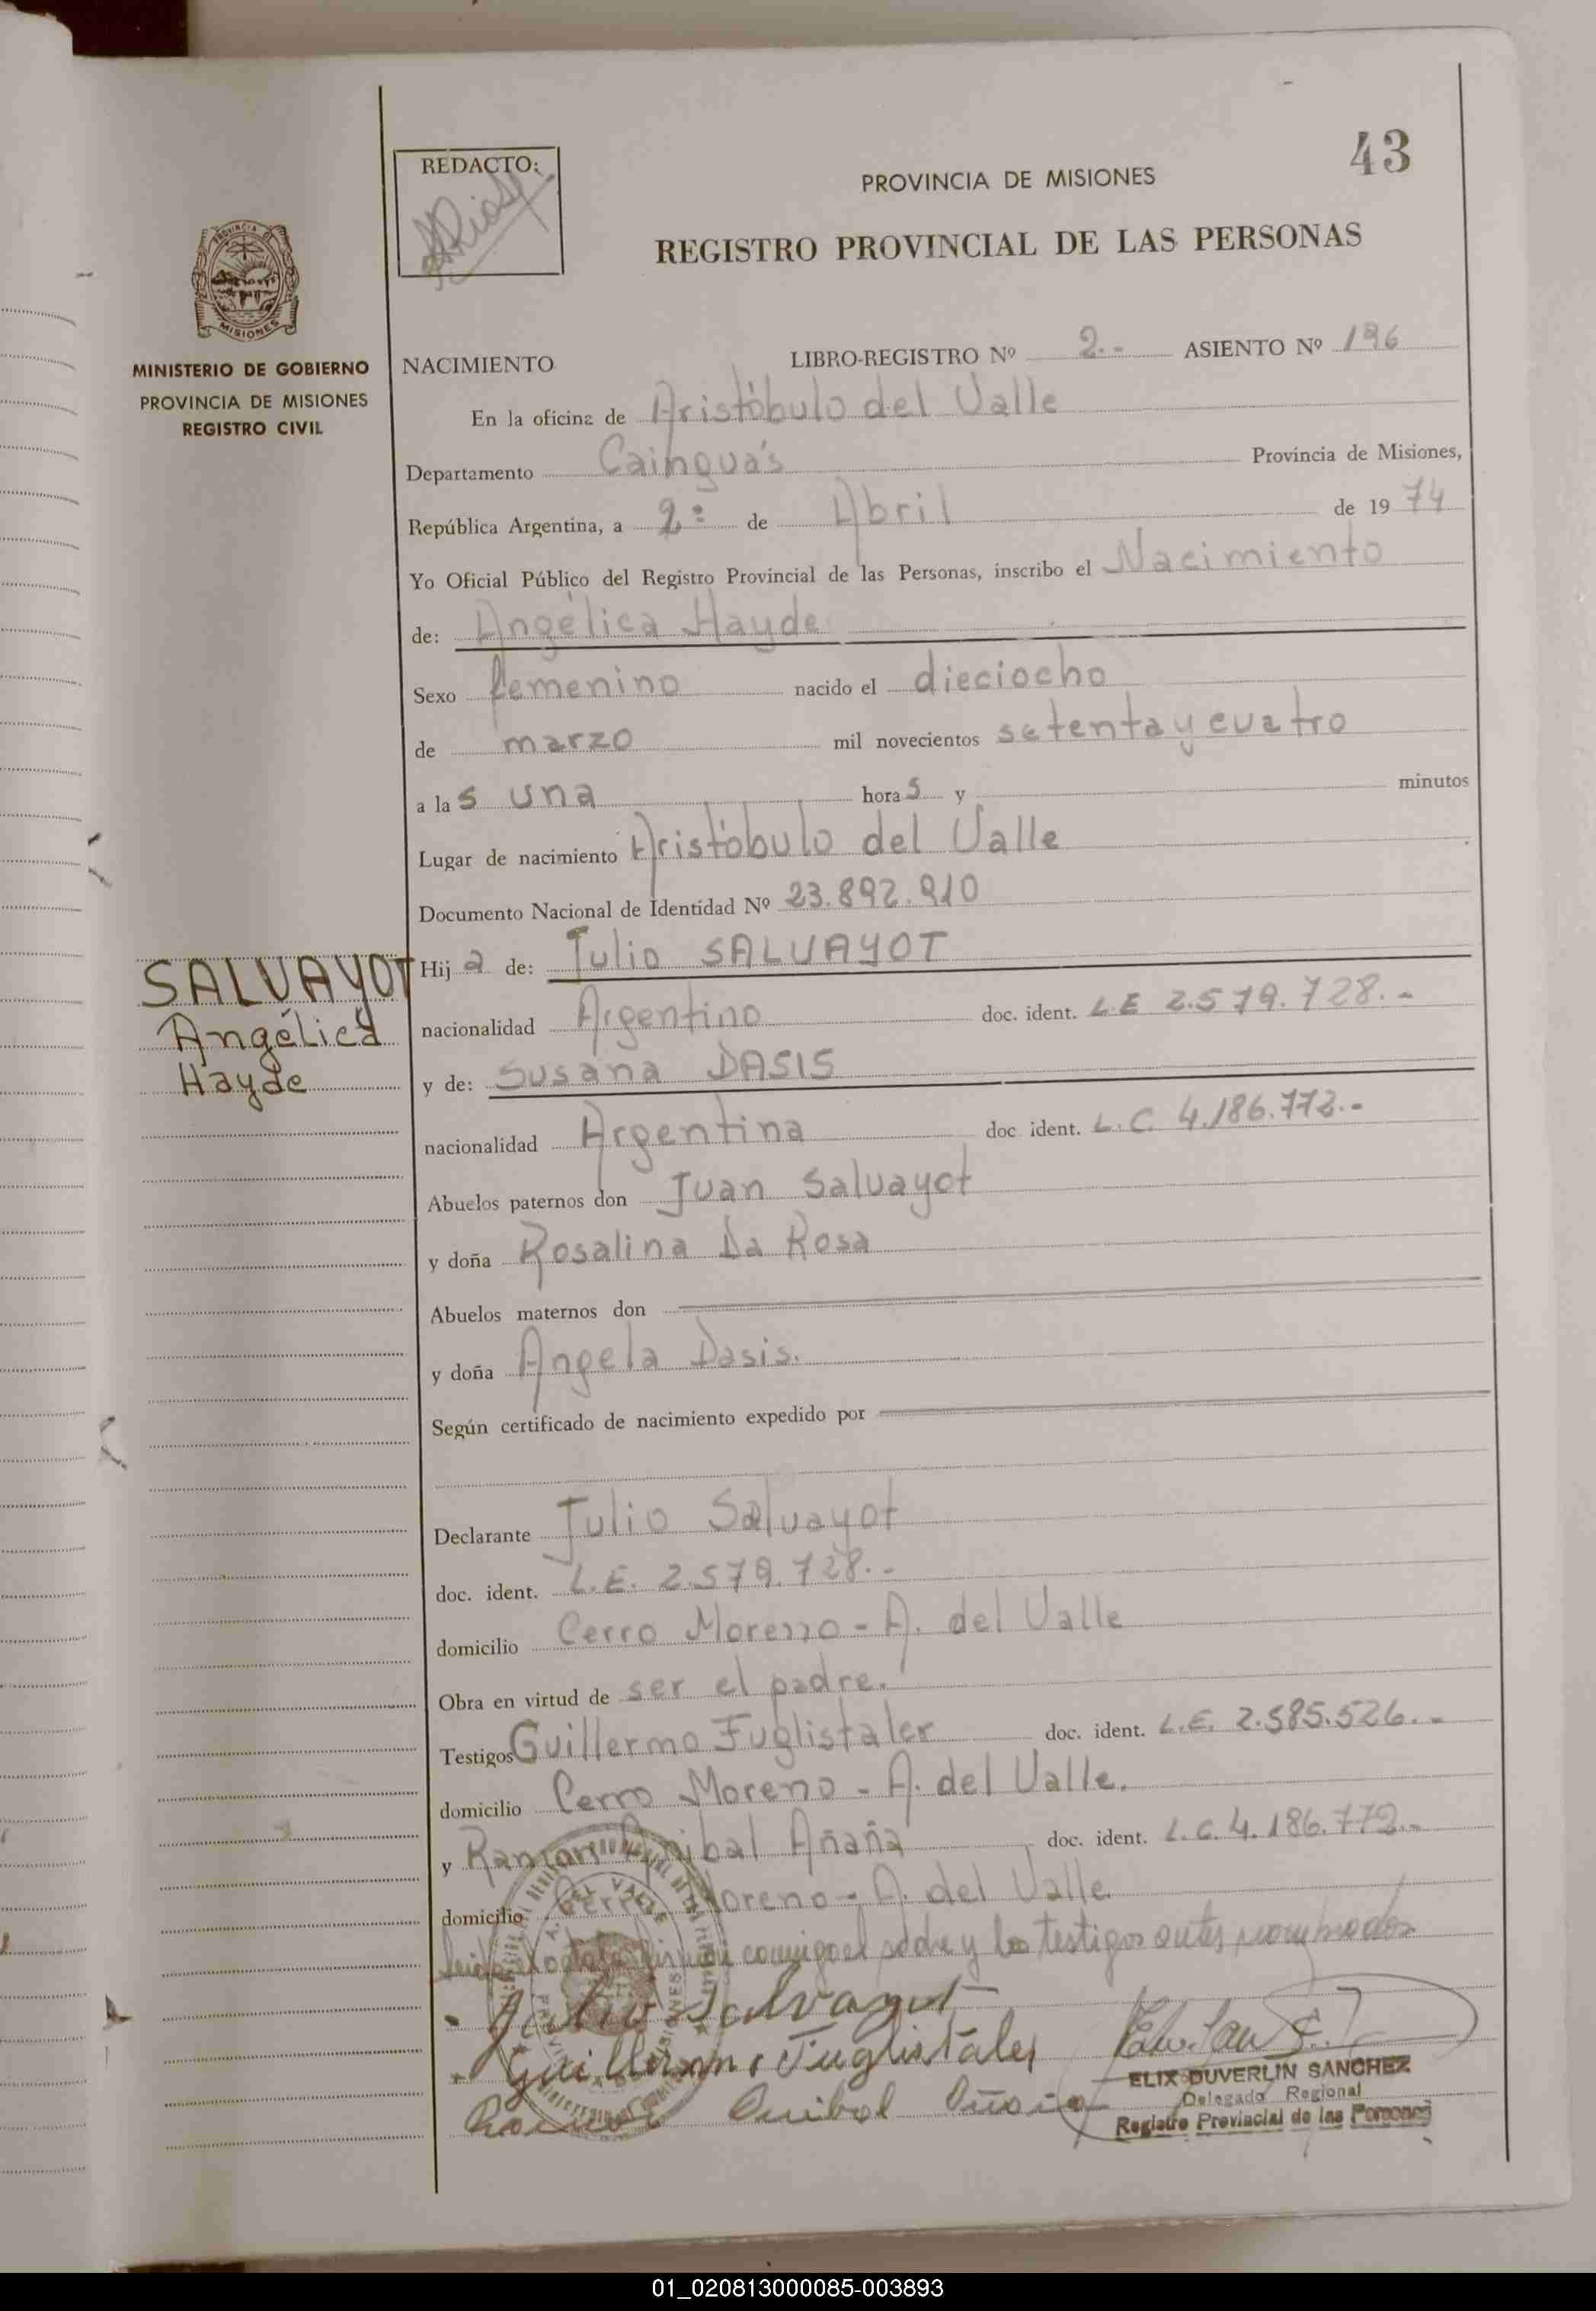 43
REDACTO:
PROVINCIA DE MISIONES
REGISTRO PROVINCIAL DE LAS PERSONAS
MISIONES
MINISTERIO DE GOBIERNO
PROVINCIA DE MISIONES
REGISTRO CIVIL
NACIMIENTO LIBRO-REGISTRO Nº 2.- ASIENTO Nº 196
En la oficina de Aristóbulo del Valle
Departamento Cainguás Provincia de Misiones,
República Argentina, a 2: de Abril de 1974
Yo Oficial Público del Registro Provincial de las Personas, inscribo el Nacimiento
de: Angélica Hayde
Sexo femenino nacido el dieciocho
de marzo mil novecientos setenta y cuatro
a las una horas y minutos
Lugar de nacimiento Aristóbulo del Valle
Documento Nacional de Identidad Nº 23.892.910
SALVAYOT
Angélica
Hayde
Hija de: Julio SALVAYOT
nacionalidad Argentino doc. ident. L.E 2.579.728.-
y de: Susana DASIS
nacionalidad Argentina doc ident. L.C. 4.186.772.-
Abuelos paternos don Juan Salvayot
y doña Rosalina Da Rosa
Abuelos maternos don
y doña Angela Dasis.
Según certificado de nacimiento expedido por
Declarante Julio Salvayot
doc. ident. L.E. 2.579.728.-
domicilio Cerro Moreno - A. del Valle
Obra en virtud de ser el padre.
Testigos Guillermo Fuglistaler doc. ident. L.E. 2.585.526.-
domicilio Cerro Moreno - A. del Valle.
y Ramon Anibal Añaña doc. ident. L.C. 4.186.772.-
domicilio Cerro Moreno - A. del Valle
conmigo el padre y los testigos antes nombrados
Julio Salvayot
Guillermo Fuglistaler
Anibal
ELIX DUVERLIN SANCHEZ
Delegado Regional
Registro Provincial de las Personas
01_020813000085-003893